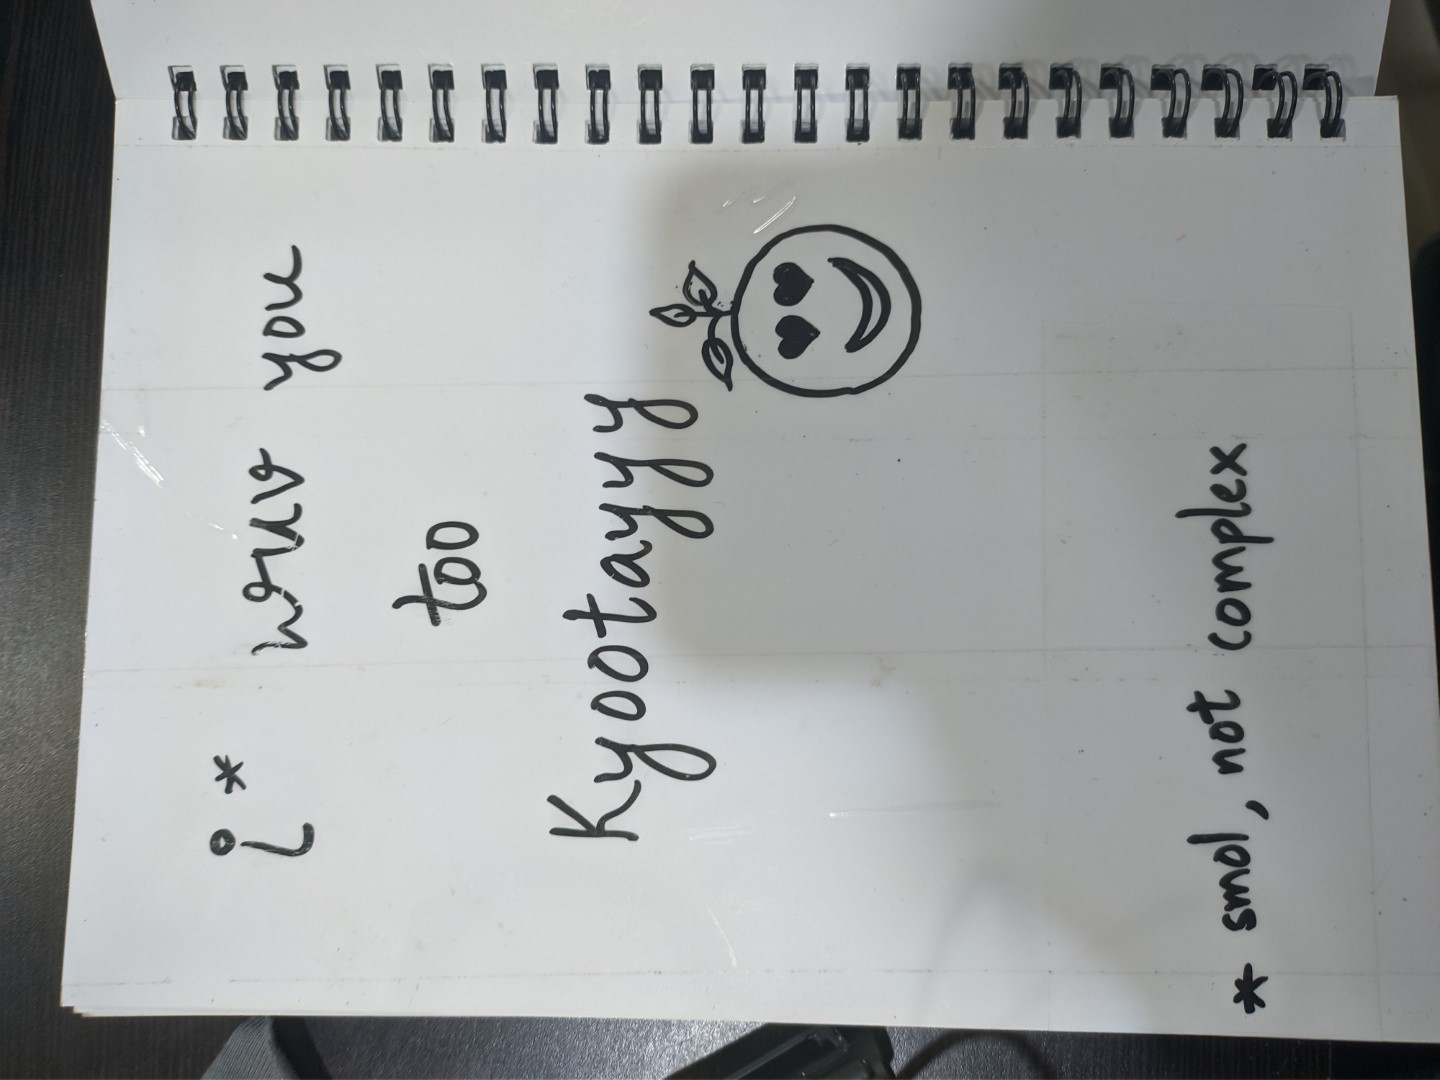 i* wuv you
too
Kyootayyy
* smol, not complex